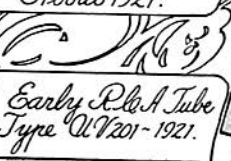 1921.
Early R.C.A Tube
Type UV201~1921.